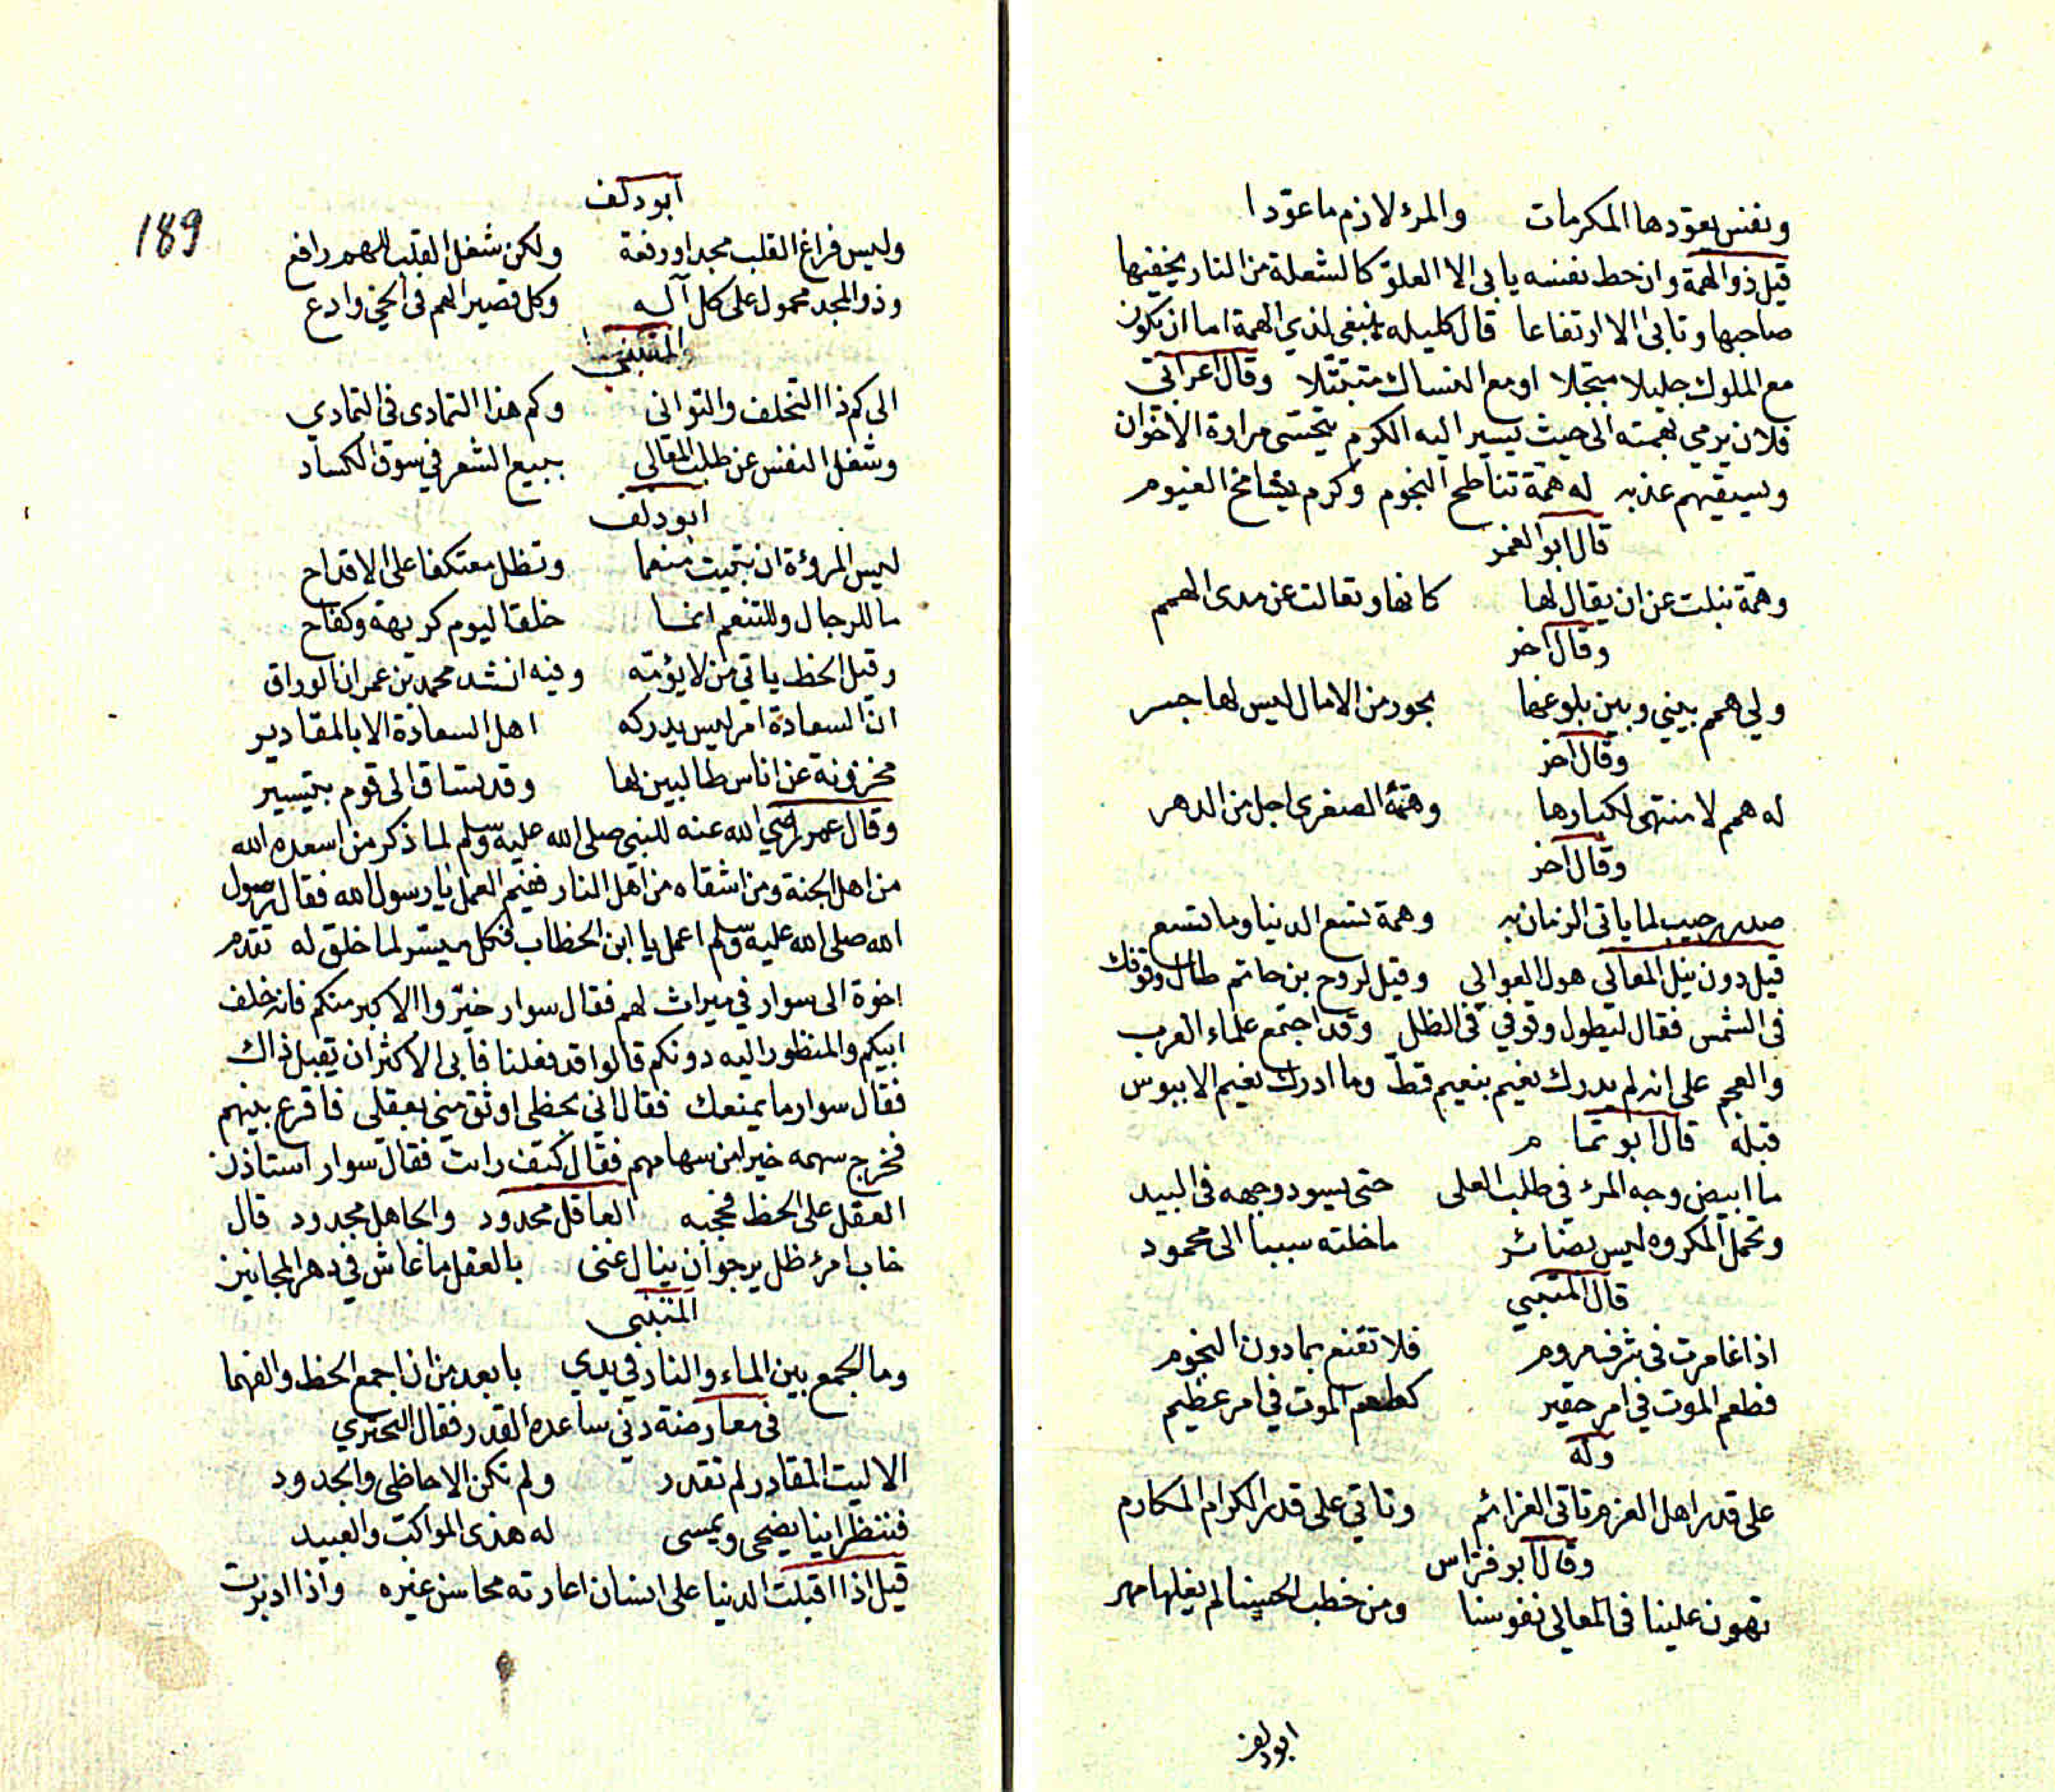 ونفس يعودها المكرمات والمرء لازم ما عودا
قيل ذو الهمة وان حط نفسه يابى الا العلو كالشعلة من النار يخفيها
صاحبها وتابى الا ارتفاعا قال كليله ينبغى لذي الهمة اما ان يكون
مع الملوك جليلا مبجلا او مع النساك متبتلا وقال اعرابي
فلان يرمي بهمته الى حيث يسير اليه الكرم يتحسى مرارة الاخوان
ويسقيهم عذبه له همة تناطح النجوم وكرم يشامخ الغيوم
قال ابو الغمر
وهمة نبلت عن ان يقال لها كانها وتعالت عن مدى الهمم
وقال اخر
ولي همم بيني وبين بلوغها بحور من الامال ليس لها جسر
وقال اخر
له همم لا منتهى لكبارها وهمته الصغرى اجل من الدهر
وقال اخر
صدر رحيب لما ياتى الزمان به وهمة تسع الدنيا وما تسع
قيل دون نيل المعالي هول العوالي وقيل لروح بن حاتم طال وقوفك
فى الشمس فقال ليطول وقوفي فى الظل وقد اجتمع علماء العرب
والعجم على انه لم يدرك نعيم بنعيم قط وما ادرك نعيم الا ببوس
قبله قال ابو تما م
ما ابيض وجه المرء في طلب العلى حتى يسود وجهه فى البيد
وتحمل المكروه ليس بضائر ما خلته سببا الى محمود
قال المتنبي
اذا غامرت فى شرف مروم فلا تقنع بما دون النجوم
فطعم الموت في امر حقير كطعم الموت في امر عظيم
وله
على قدر اهل العزم تاتى العزائم وتاتي على قدر الكرام المكارم
وقال ابو فراس
تهون علينا فى المعالي نفوسنا ومن خطب الحسنا لم يغلها مهر
ابو دلف
189
ابو دلف
وليس فراغ القلب مجدا ورفعة ولكن شغل القلب للهم رافع
وذو المجد محمول على كل آلة وكل قصير الهم فى الحي وادع
المتنبى
الى كم ذا التخلف والتوانى وكم هذا التمادى فى التمادي
وشغل النفس عن طلب المعالى ببيع الشعر في سوق الكساد
ابو دلف
ليس المروءة ان تبيت منعما وتظل معتكفا على الاقداح
ما للرجال وللتنعم انما خلقا ليوم كريهة وكفاح
وقيل الحظ ياتي من لا يؤمه وفيه انشد محمد بن عمران الوراق
ان السعادة امر ليس يدركه اهل السعادة الا بالمقادير
مخزونة عن اناس طالبين لها وقد تساق الى قوم بتيسير
وقال عمر رضي الله عنه للنبي صلى الله عليه وسلم لما ذكر من اسعده الله
من اهل الجنة ومن اشقاه من اهل النار ففيم العمل يا رسول الله فقال رسول
الله صلى الله عليه وسلم اعمل يا ابن الخطاب فكل ميسر لما خلق له تقدم
اخوة الى سوار في ميراث لهم فقال سوار خيروا الاكبر منكم فانه خلف
ابيكم والمنظور اليه دونكم قالوا قد فعلنا فابى الاكثر ان يقبل ذاك
فقال سوار ما يمنعك فقال اني بحظى اوثق مني بعقلى فاقرع بينهم
فخرج سهمه خير من سهامهم فقال كيف رايت فقال سوار استاذن
العقل على الحظ فحجبه العاقل محدود والجاهل مجدود قال
خاب امرء ظل يرجو ان ينال غنى بالعقل ما عاش في دهر المجانين
المتنبى
وما الجمع بين الماء والنار في يدي بابعد من ان اجمع الحظ والفهما
فى معارضة دني ساعده القدر فقال البحتري
الا ليت المقادر لم تقدر ولم تكن الاحاظى والجدود
فننظر اينا يضحى ويمسى له هذى المواكب والعبيد
قيل اذا اقبلت الدنيا على انسان اعارته محاسن غيره واذا ادبرت